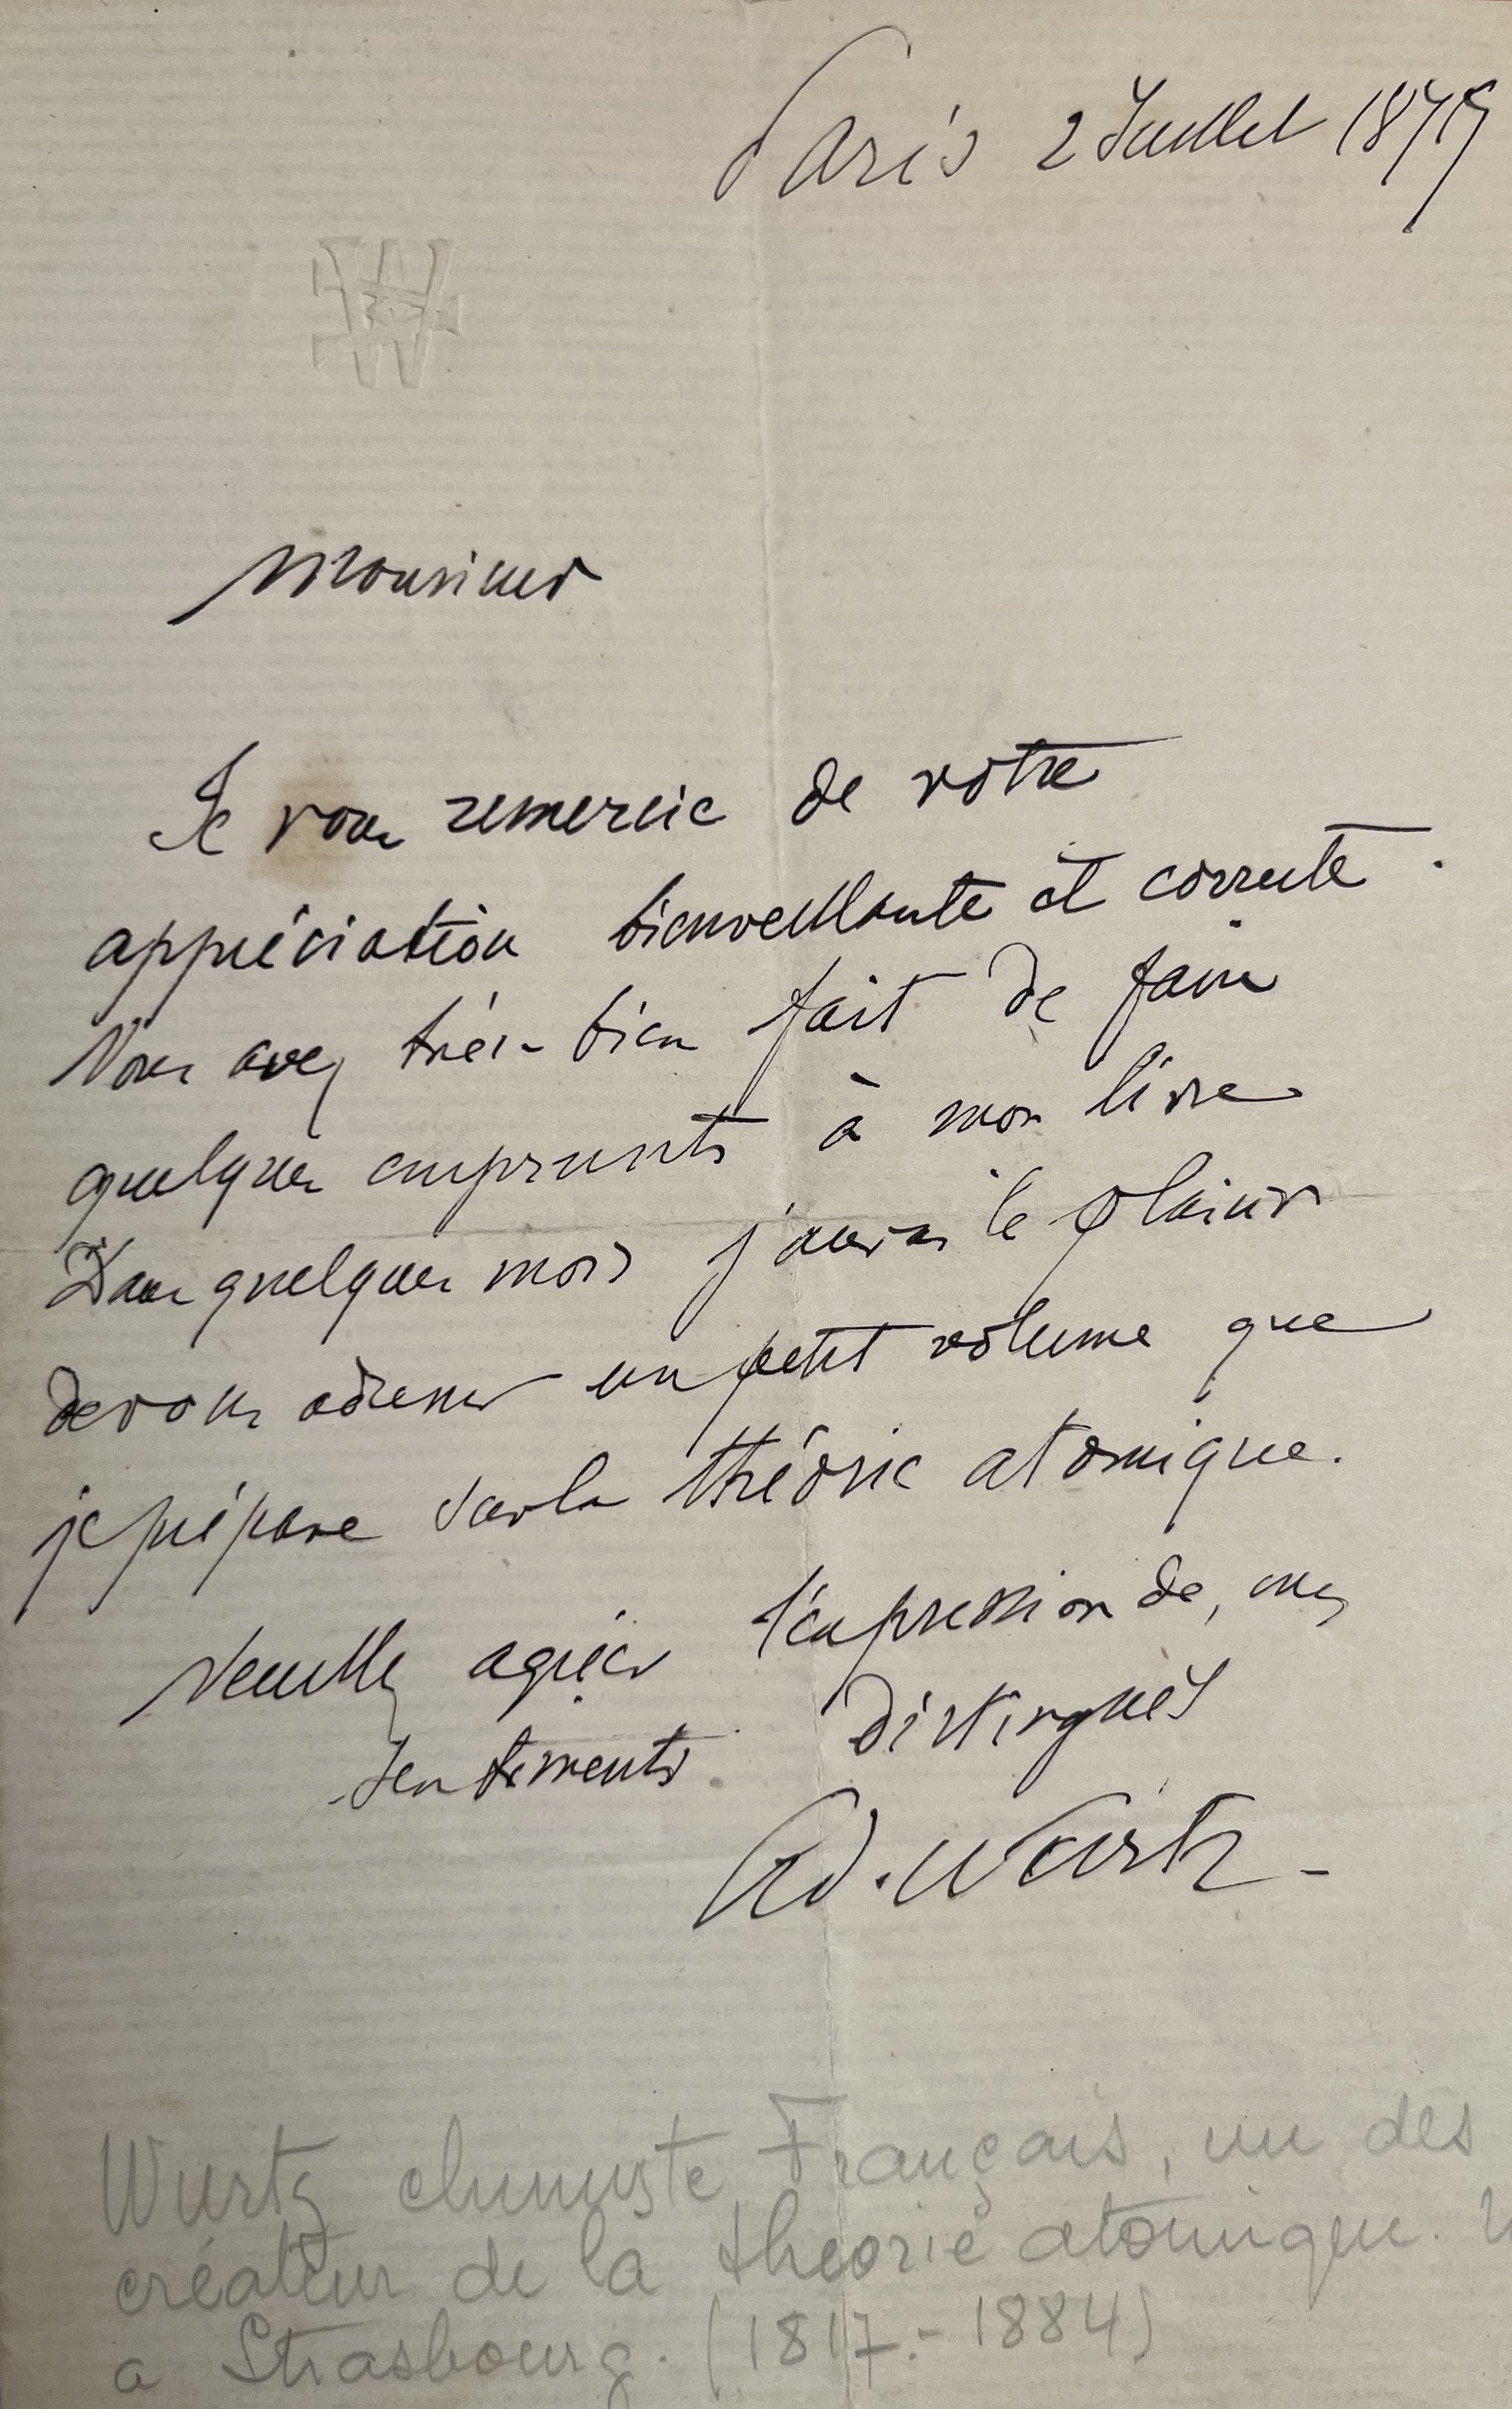 Paris 2 Juillet 1879
W
Monsieur
Je vous remercie de votre
appréciation bienveillante et correcte.
Vous avez très-bien fait de faire
quelques emprunts à mon livre
Dans quelques mois j'aurai le plaisir
de vous adresser un petit volume que
je prépare sur la théorie atomique.
Veuillez agréer l'expression de, mes
sentiments distingués
Ad. Wurtz -
Wurtz chimiste Français, un des
créateur de la théorie atomique.
a Strasbourg. (1817.- 1884)